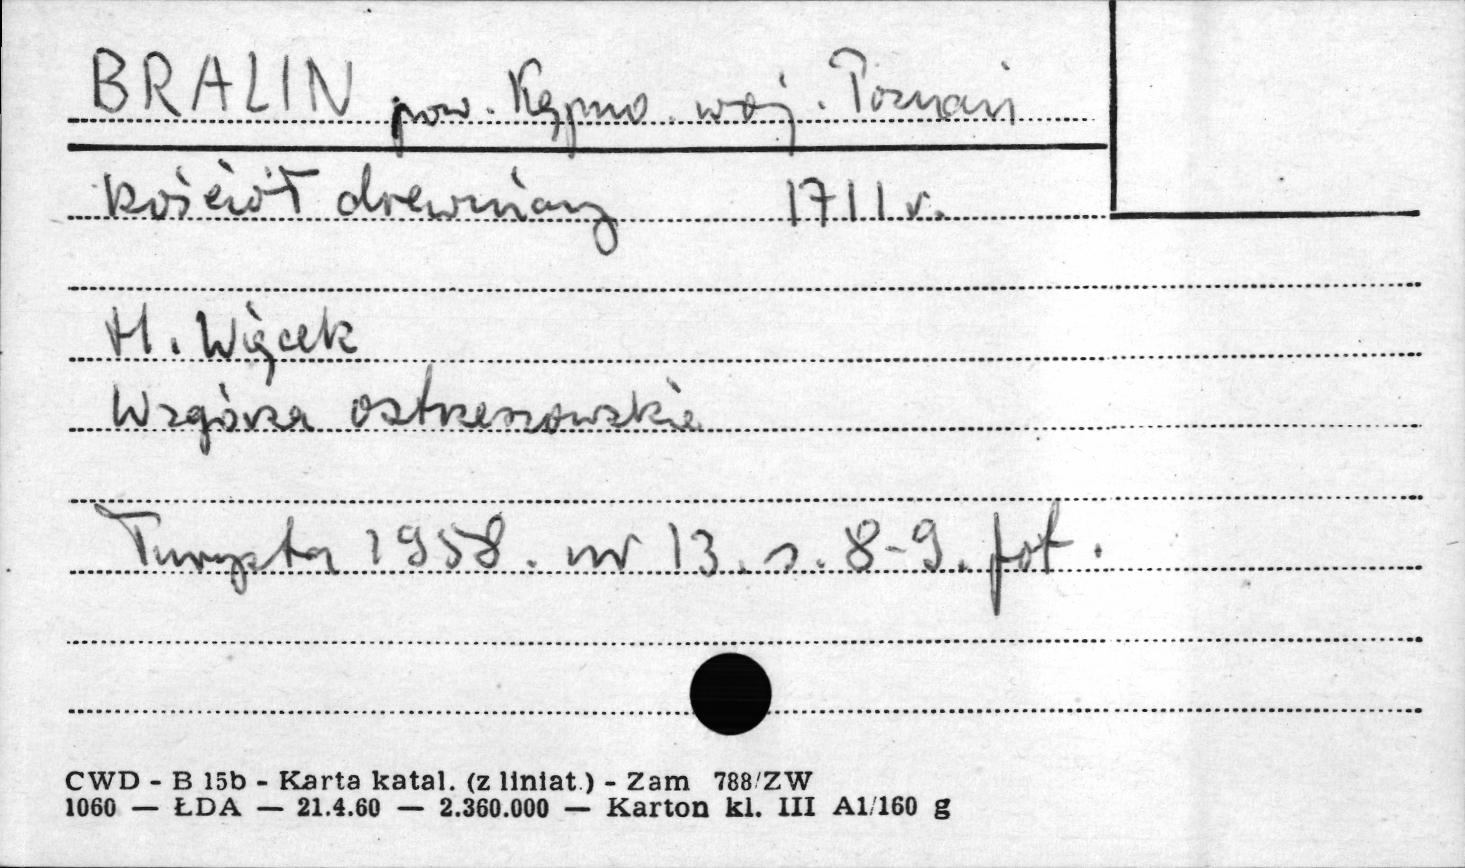 BRALIN pow. Kępno woj. Poznań
kościół drewniany 1711 r.
H. Więcek
Wzgórza ostrzeszowskie
Turysta 1958. nr 13. s. 8-9. fot.
CWD - B 15b - Karta katal. (z liniat.) - Zam 788/ZW
1060 — ŁDA — 21.4.60 — 2.360.000 — Karton kl. III A1/160 g